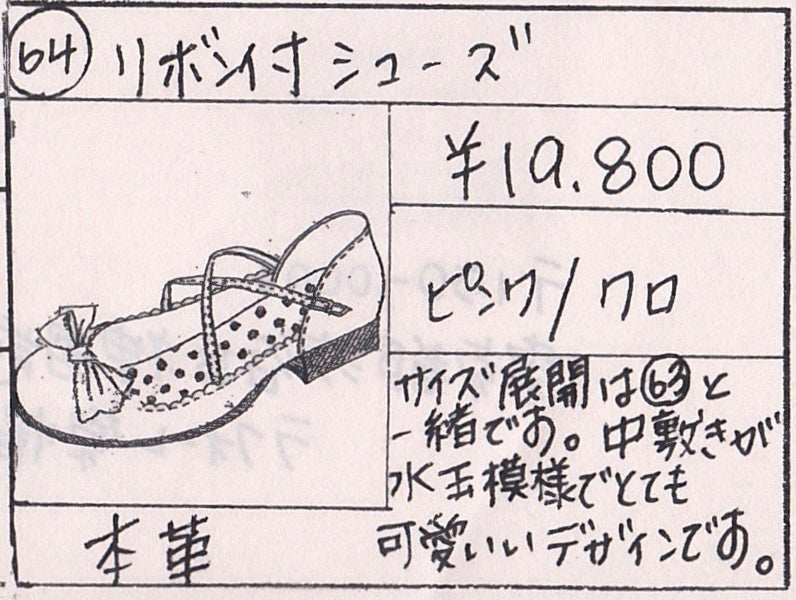 64 リボン付シューズ
¥19.800
ピンク/クロ
サイズ展開は63と
一緒です。中敷きが
水玉模様でとても
可愛いいデザインです。
本革